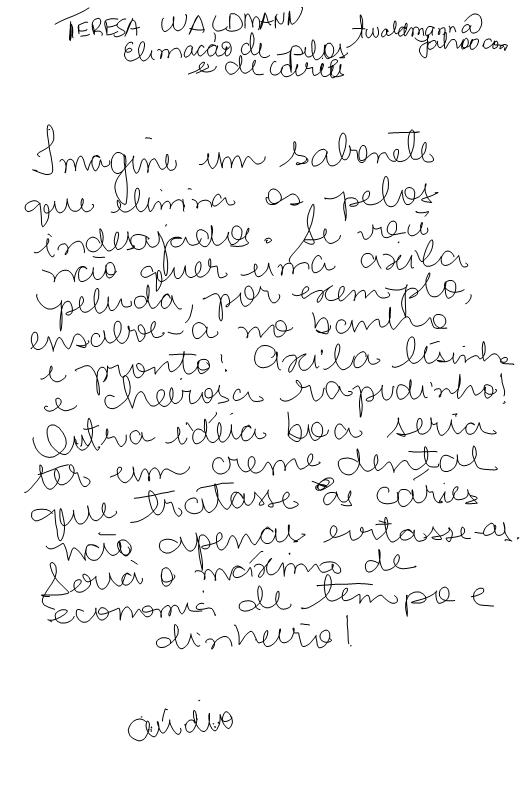 TERESA WALDMANN twaldmann@
Elimação de pelos yahoo com
e de cáries
Imagine um sabonete
que elimina os pelos
indesajados. Se você
não quer uma axila
peluda, por exemplo,
ensaboe-a no banho
e pronto! Axila lisinha
e cheirosa rapidinho!
Outra idéia boa seria
ter um creme dental
que tratasse as cáries
não apenas evitasse-as.
Seria o máximo de
economia de tempo e
dinheiro!